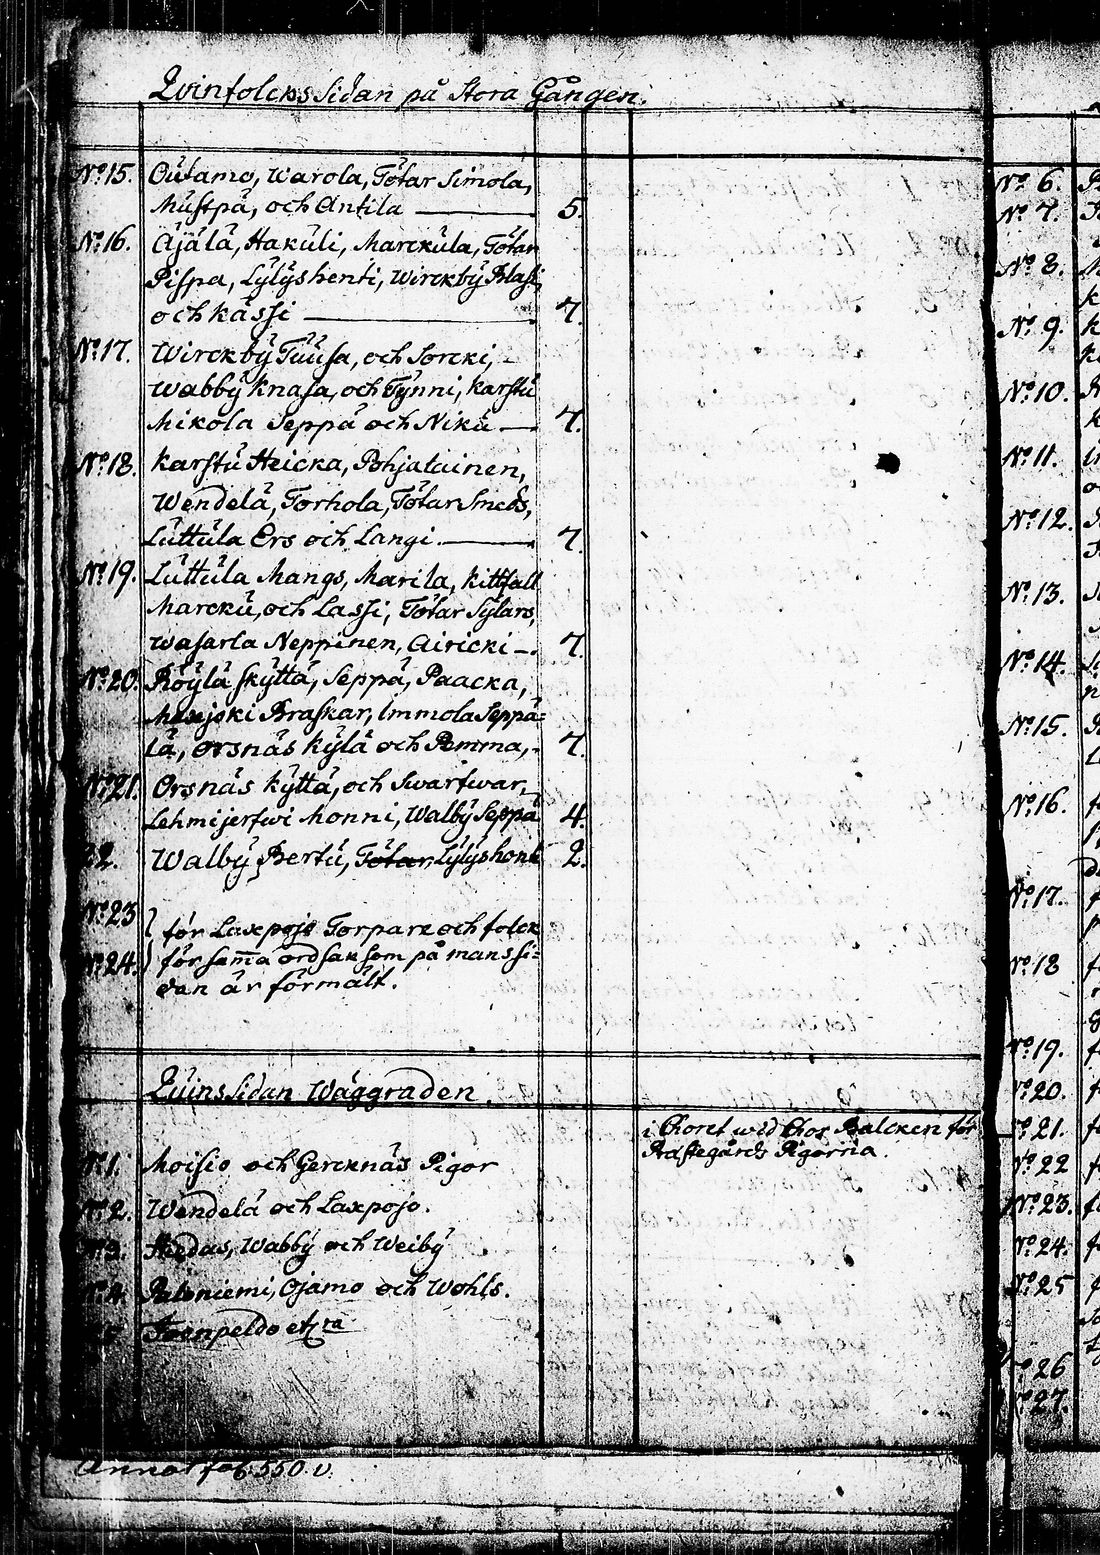 Qvinfolckssidan på Stora Gången.
No. 15. Outamo, Warola, Tötar Simola,
Mustpä, och Antila 5.
No. 16. Äjälä, Hakuli, Marckula, Tötar
Pispa, Lylyshenti, Wirckby Blasi,
och kässi 7.
No. 17. Wirckby Tuusa, och Sorcki,
Wabby knasa, och Tynni, karstu
Mikola Seppä och Niku 7.
No. 18. karstu Heicka, Pohjalainen,
Wendelä, Torhola, Tötar Smeds,
Luttula Ers och Langi. 7.
No. 19. Luttula Mangs, Marila, kittfall
Marcku, och Lassi, Tötar Sylars,
Wasarla Neppinen, Airicki 7.
No. 20. Röylä skyttä, Seppä, Paacka,
Braskar, Immola Seppä=
lä, Orsnäs kylä och Pomma, 7.
No. 21. Orsnäs kyttä, och Swartwar,
Lehmijerfwi Monni, Walby Seppä 4.
22. Walby Bertu, Tötar Lylyshonti 2.
No. 23 för Laxpojo Torpare och folck
No. 24. för samma ordsak som på manssi=
dan är förmält.
Quinssidan Wäggraden.
i Choret wid Chor Balcken för
Prästegårds Pigorna.
No. 1. Moisio och Gercknäs Pigor
No. 2. Wendelä och Laxpojo.
No. 3. Hiedas, Wabby och Weiby
No. 4. Paloniemi, Ojamo och Wohls.
etc ra
No. 6.
No. 7.
No. 8.
No. 9.
No. 10.
No. 11.
No. 12.
No. 13.
No. 14.
No. 15.
No. 16.
No. 17.
No. 18
No. 19.
No. 20.
No. 21.
No. 22
No. 23.
No. 24.
No. 25
No. 26
No. 27.
550. v.